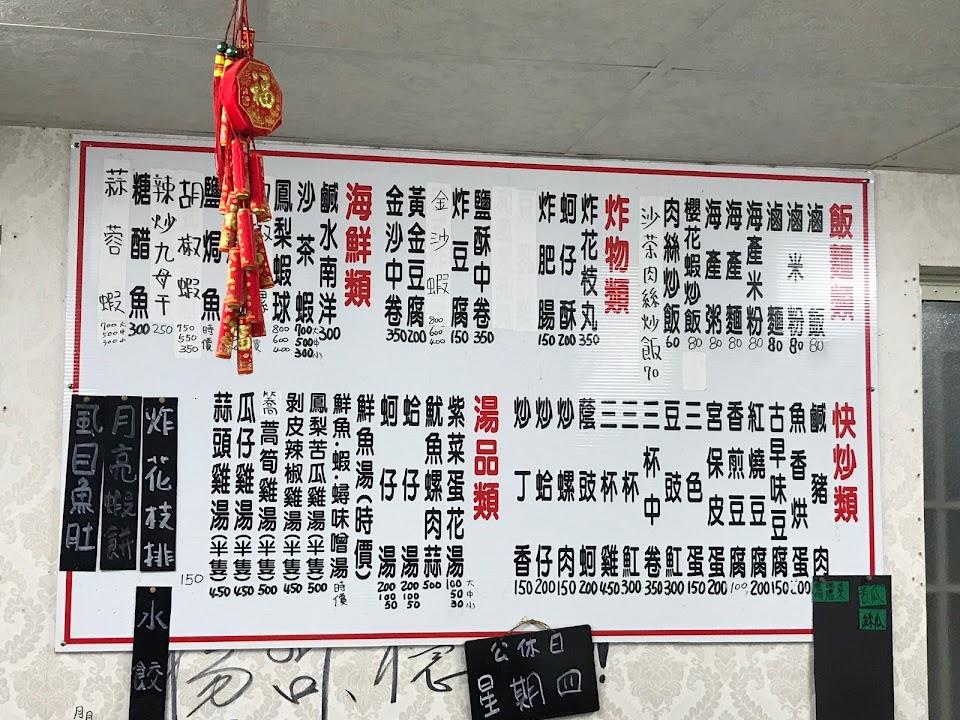 飯麵類
滷飯 80
滷米粉 80
滷麵 80
海產米粉 80
海產麵 80
海產粥 80
櫻花蝦炒飯
肉絲炒飯 60
沙茶肉絲炒飯 70
炸物類
炸花枝丸 350
蚵仔酥 200
炸肥腸 150
鹽酥中卷 350
炸豆腐 150
金沙蝦 800 600 400
黃金豆腐 200
金沙中卷 350
海鮮類
鹹水南洋 300
沙茶蝦 大700 中500 小300
鳳梨蝦球 800 600 400
鹽焗魚 時價
胡椒蝦 750 550 350
辣炒九母干 250
糖醋魚 300
蒜蓉蝦 大700 中500 小300
快炒類
鹹豬肉
魚香烘蛋 200
古早味豆腐 150
紅燒豆腐 200
香煎豆腐 100
宮保皮蛋 200
三色蛋 150
豆豉魟 300
三杯中卷 350
三杯魟 300
三杯雞 450
蔭豉蚵 200
炒螺肉 150
炒蛤仔 200
炒丁香 150
湯品類
紫菜蛋花湯 大100 中50 小30
魷魚螺肉蒜 500
蛤仔湯 200 100 50
蚵仔湯 200 100 50
鮮魚湯(時價)
鮮魚.蝦.蟳味噌湯 時價
鳳梨苦瓜雞湯(半隻) 500
剝皮辣椒雞湯(半隻) 450
蒿筍雞湯(半隻) 500
瓜仔雞湯(半隻) 450
蒜頭雞湯(半隻) 450
炸花枝排 150
月亮蝦餅
虱目魚肚
水餃
公休日
星期四
苦瓜
絲瓜